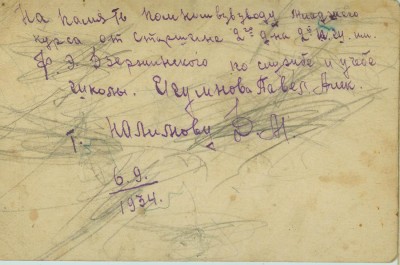 На память помкомвзводу младшего
курса от старшины 2го д-на 2й
Ф. Э. Дзержинского по службе и учебе
школы. Павел Алек.
т. Налимову Д. М.
6.9.
1934.